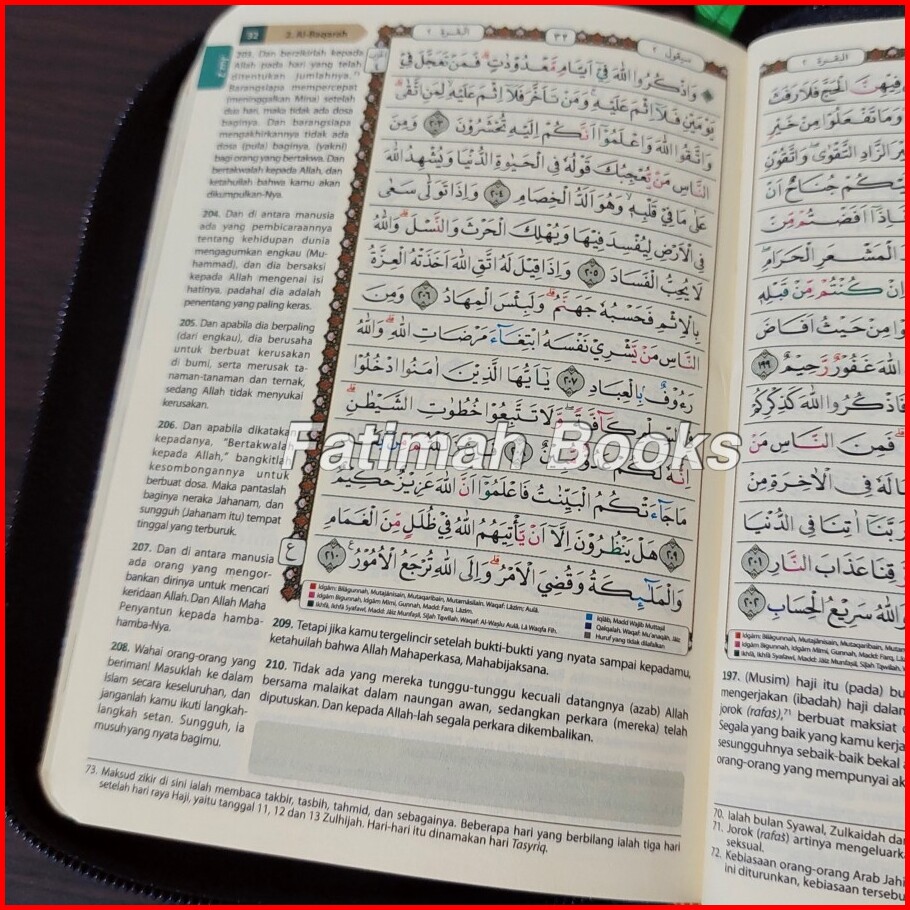 32
2. Al-Baqarah
203. Dan berzikirlah kepada
Allah pada hari yang telah
ditentukan jumlahnya.⁷³
Barangsiapa mempercepat
(meninggalkan Mina) setelah
dua hari, maka tidak ada dosa
baginya. Dan barangsiapa
mengakhirkannya tidak ada
dosa (pula) baginya, (yakni)
bagi orang yang bertakwa. Dan
bertakwalah kepada Allah, dan
ketahuilah bahwa kamu akan
dikumpulkan-Nya.
204. Dan di antara manusia
ada yang pembicaraannya
tentang kehidupan dunia
mengagumkan engkau (Mu-
hammad), dan dia bersaksi
kepada Allah mengenai isi
hatinya, padahal dia adalah
penentang yang paling keras.
205. Dan apabila dia berpaling
(dari engkau), dia berusaha
untuk berbuat kerusakan
di bumi, serta merusak ta-
naman-tanaman dan ternak,
sedang Allah tidak menyukai
kerusakan.
206. Dan apabila dikatakan
kepadanya, "Bertakwalah
kepada Allah," bangkitlah
kesombongannya untuk
berbuat dosa. Maka pantaslah
baginya neraka Jahanam, dan
sungguh (Jahanam itu) tempat
tinggal yang terburuk.
207. Dan di antara manusia
ada orang yang mengor-
bankan dirinya untuk mencari
keridaan Allah. Dan Allah Maha
Penyantun kepada hamba-
hamba-Nya.
208. Wahai orang-orang yang
beriman! Masuklah ke dalam
Islam secara keseluruhan, dan
janganlah kamu ikuti langkah-
langkah setan. Sungguh, ia
musuh yang nyata bagimu.
البقرة ٢
٣٢
سيقول ٢
وَاذْكُرُوا اللّٰهَ فِيْٓ اَيَّامٍ مَّعْدُوْدٰتٍ ۗ فَمَنْ تَعَجَّلَ فِيْ
يَوْمَيْنِ فَلَآ اِثْمَ عَلَيْهِ ۚ وَمَنْ تَاَخَّرَ فَلَآ اِثْمَ عَلَيْهِ ۙ لِمَنِ اتَّقٰى ۗ
وَاتَّقُوا اللّٰهَ وَاعْلَمُوْٓا اَنَّكُمْ اِلَيْهِ تُحْشَرُوْنَ ٢٠٣ وَمِنَ
النَّاسِ مَنْ يُّعْجِبُكَ قَوْلُهٗ فِى الْحَيٰوةِ الدُّنْيَا وَيُشْهِدُ اللّٰهَ
عَلٰى مَا فِيْ قَلْبِهٖ ۙ وَهُوَ اَلَدُّ الْخِصَامِ ٢٠٤ وَاِذَا تَوَلّٰى سَعٰى
فِى الْاَرْضِ لِيُفْسِدَ فِيْهَا وَيُهْلِكَ الْحَرْثَ وَالنَّسْلَ ۗ وَاللّٰهُ
لَا يُحِبُّ الْفَسَادَ ٢٠٥ وَاِذَا قِيْلَ لَهُ اتَّقِ اللّٰهَ اَخَذَتْهُ الْعِزَّةُ
بِالْاِثْمِ فَحَسْبُهٗ جَهَنَّمُ ۗ وَلَبِئْسَ الْمِهَادُ ٢٠٦ وَمِنَ
النَّاسِ مَنْ يَّشْرِيْ نَفْسَهُ ابْتِغَاۤءَ مَرْضَاتِ اللّٰهِ ۗ وَاللّٰهُ
رَءُوْفٌۢ بِالْعِبَادِ ٢٠٧ يٰٓاَيُّهَا الَّذِيْنَ اٰمَنُوا ادْخُلُوْا
كَاۤفَّةً ۖ وَّلَا تَتَّبِعُوْا خُطُوٰتِ الشَّيْطٰنِ ۗ
اِنَّهٗ لَكُمْ
مَا جَاۤءَتْكُمُ الْبَيِّنٰتُ فَاعْلَمُوْٓا اَنَّ اللّٰهَ عَزِيْزٌ حَكِيْمٌ
٢٠٩ هَلْ يَنْظُرُوْنَ اِلَّآ اَنْ يَّأْتِيَهُمُ اللّٰهُ فِيْ ظُلَلٍ مِّنَ الْغَمَامِ
وَالْمَلٰۤىِٕكَةُ وَقُضِيَ الْاَمْرُ ۗ وَاِلَى اللّٰهِ تُرْجَعُ الْاُمُوْرُ ٢١٠
ع
Fatimah Books
Idgām: Bilāgunnah, Mutajānisain, Mutaqaribain, Mutamāsilain. Waqaf: Lāzim; Aulā.
Idgām Bigunnah, Idgām Mimi, Gunnah, Madd: Farq, Lāzim.
Ikhfā, Ikhfā Syafawi, Madd: Jāiz Munfaṣil, Ṣilah Ṭawīlah. Waqaf: Al-Waṣlu Aulā, Lā Waqfa Fih.
Iqlāb, Madd Wajib Muttaṣil
Qalqalah. Waqaf: Mu'anaqah, Jāiz
Huruf yang tidak dilafalkan
209. Tetapi jika kamu tergelincir setelah bukti-bukti yang nyata sampai kepadamu,
ketahuilah bahwa Allah Mahaperkasa, Mahabijaksana.
210. Tidak ada yang mereka tunggu-tunggu kecuali datangnya (azab) Allah
bersama malaikat dalam naungan awan, sedangkan perkara (mereka) telah
diputuskan. Dan kepada Allah-lah segala perkara dikembalikan.
73. Maksud zikir di sini ialah membaca takbir, tasbih, tahmid, dan sebagainya. Beberapa hari yang berbilang ialah tiga hari
setelah hari raya Haji, yaitu tanggal 11, 12 dan 13 Zulhijah. Hari-hari itu dinamakan hari Tasyriq.
البقرة ٢
فِيْهِنَّ الْحَجَّ فَلَا رَفَثَ
وَمَا تَفْعَلُوْا مِنْ خَيْرٍ
خَيْرَ الزَّادِ التَّقْوٰىۖ وَاتَّقُوْنِ
عَلَيْكُمْ جُنَاحٌ اَنْ
فَاِذَآ اَفَضْتُمْ مِّنْ
الْمَشْعَرِ الْحَرَامِ
وَاِنْ كُنْتُمْ مِّنْ قَبْلِهٖ
مِنْ حَيْثُ اَفَاضَ
اللّٰهَ غَفُوْرٌ رَّحِيْمٌ ١٩٩
فَاذْكُرُوا اللّٰهَ كَذِكْرِكُمْ
فَمِنَ النَّاسِ مَنْ
لَهٗ فِى الْاٰخِرَةِ مِنْ
رَبَّنَآ اٰتِنَا فِى الدُّنْيَا
وَّقِنَا عَذَابَ النَّارِ ٢٠١
وَاللّٰهُ سَرِيْعُ الْحِسَابِ ٢٠٢
Idgām: Bilāgunnah, Mutajānisain, Mutaqaribain, Mutam
Idgām Bigunnah, Idgām Mimi, Gunnah, Madd: Farq, Lāzim.
Ikhfā, Ikhfā Syafawi, Madd: Jāiz Munfaṣil, Ṣilah Ṭawīlah. W
197. (Musim) haji itu (pada) bu
mengerjakan (ibadah) haji dalam
jorok (rafaṡ),⁷¹ berbuat maksiat d
Segala yang baik yang kamu kerja
sesungguhnya sebaik-baik bekal a
orang-orang yang mempunyai ak
70. Ialah bulan Syawal, Zulkaidah dan
71. Jorok (rafaṡ) artinya mengeluark
seksual.
72. Kebiasaan orang-orang Arab Jahi
ini diturunkan, kebiasaan tersebu